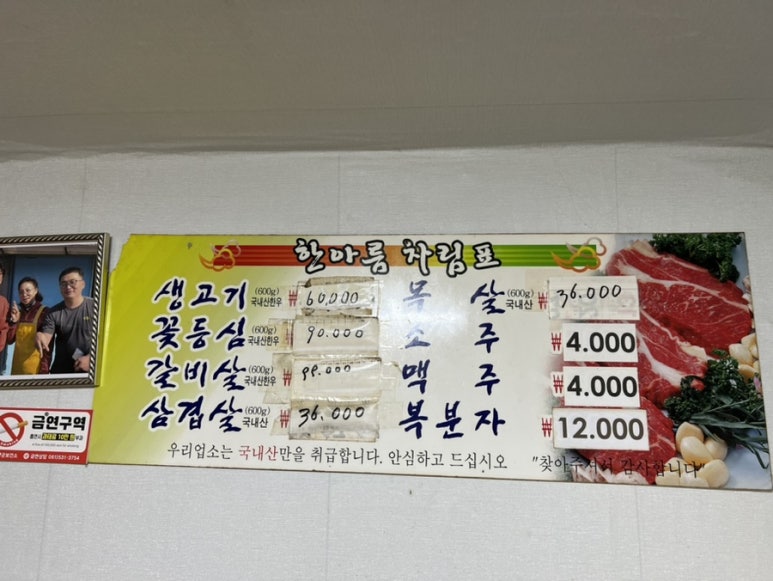 한아름 차림표
생고기 (600g) 국내산한우 ₩ 60,000
꽃등심 (600g) 국내산한우 90.000
갈비살 (600g) 국내산한우 ₩ 99.000
삼겹살 (600g) 국내산 ₩ 36.000
목 살 (600g) 국내산 ₩ 36.000
소 주 ₩ 4.000
맥 주 ₩ 4.000
복분자 ₩ 12.000
우리업소는 국내산만을 취급합니다. 안심하고 드십시오
"찾아주셔서 감사합니다"
금연구역
과태료 10만 원